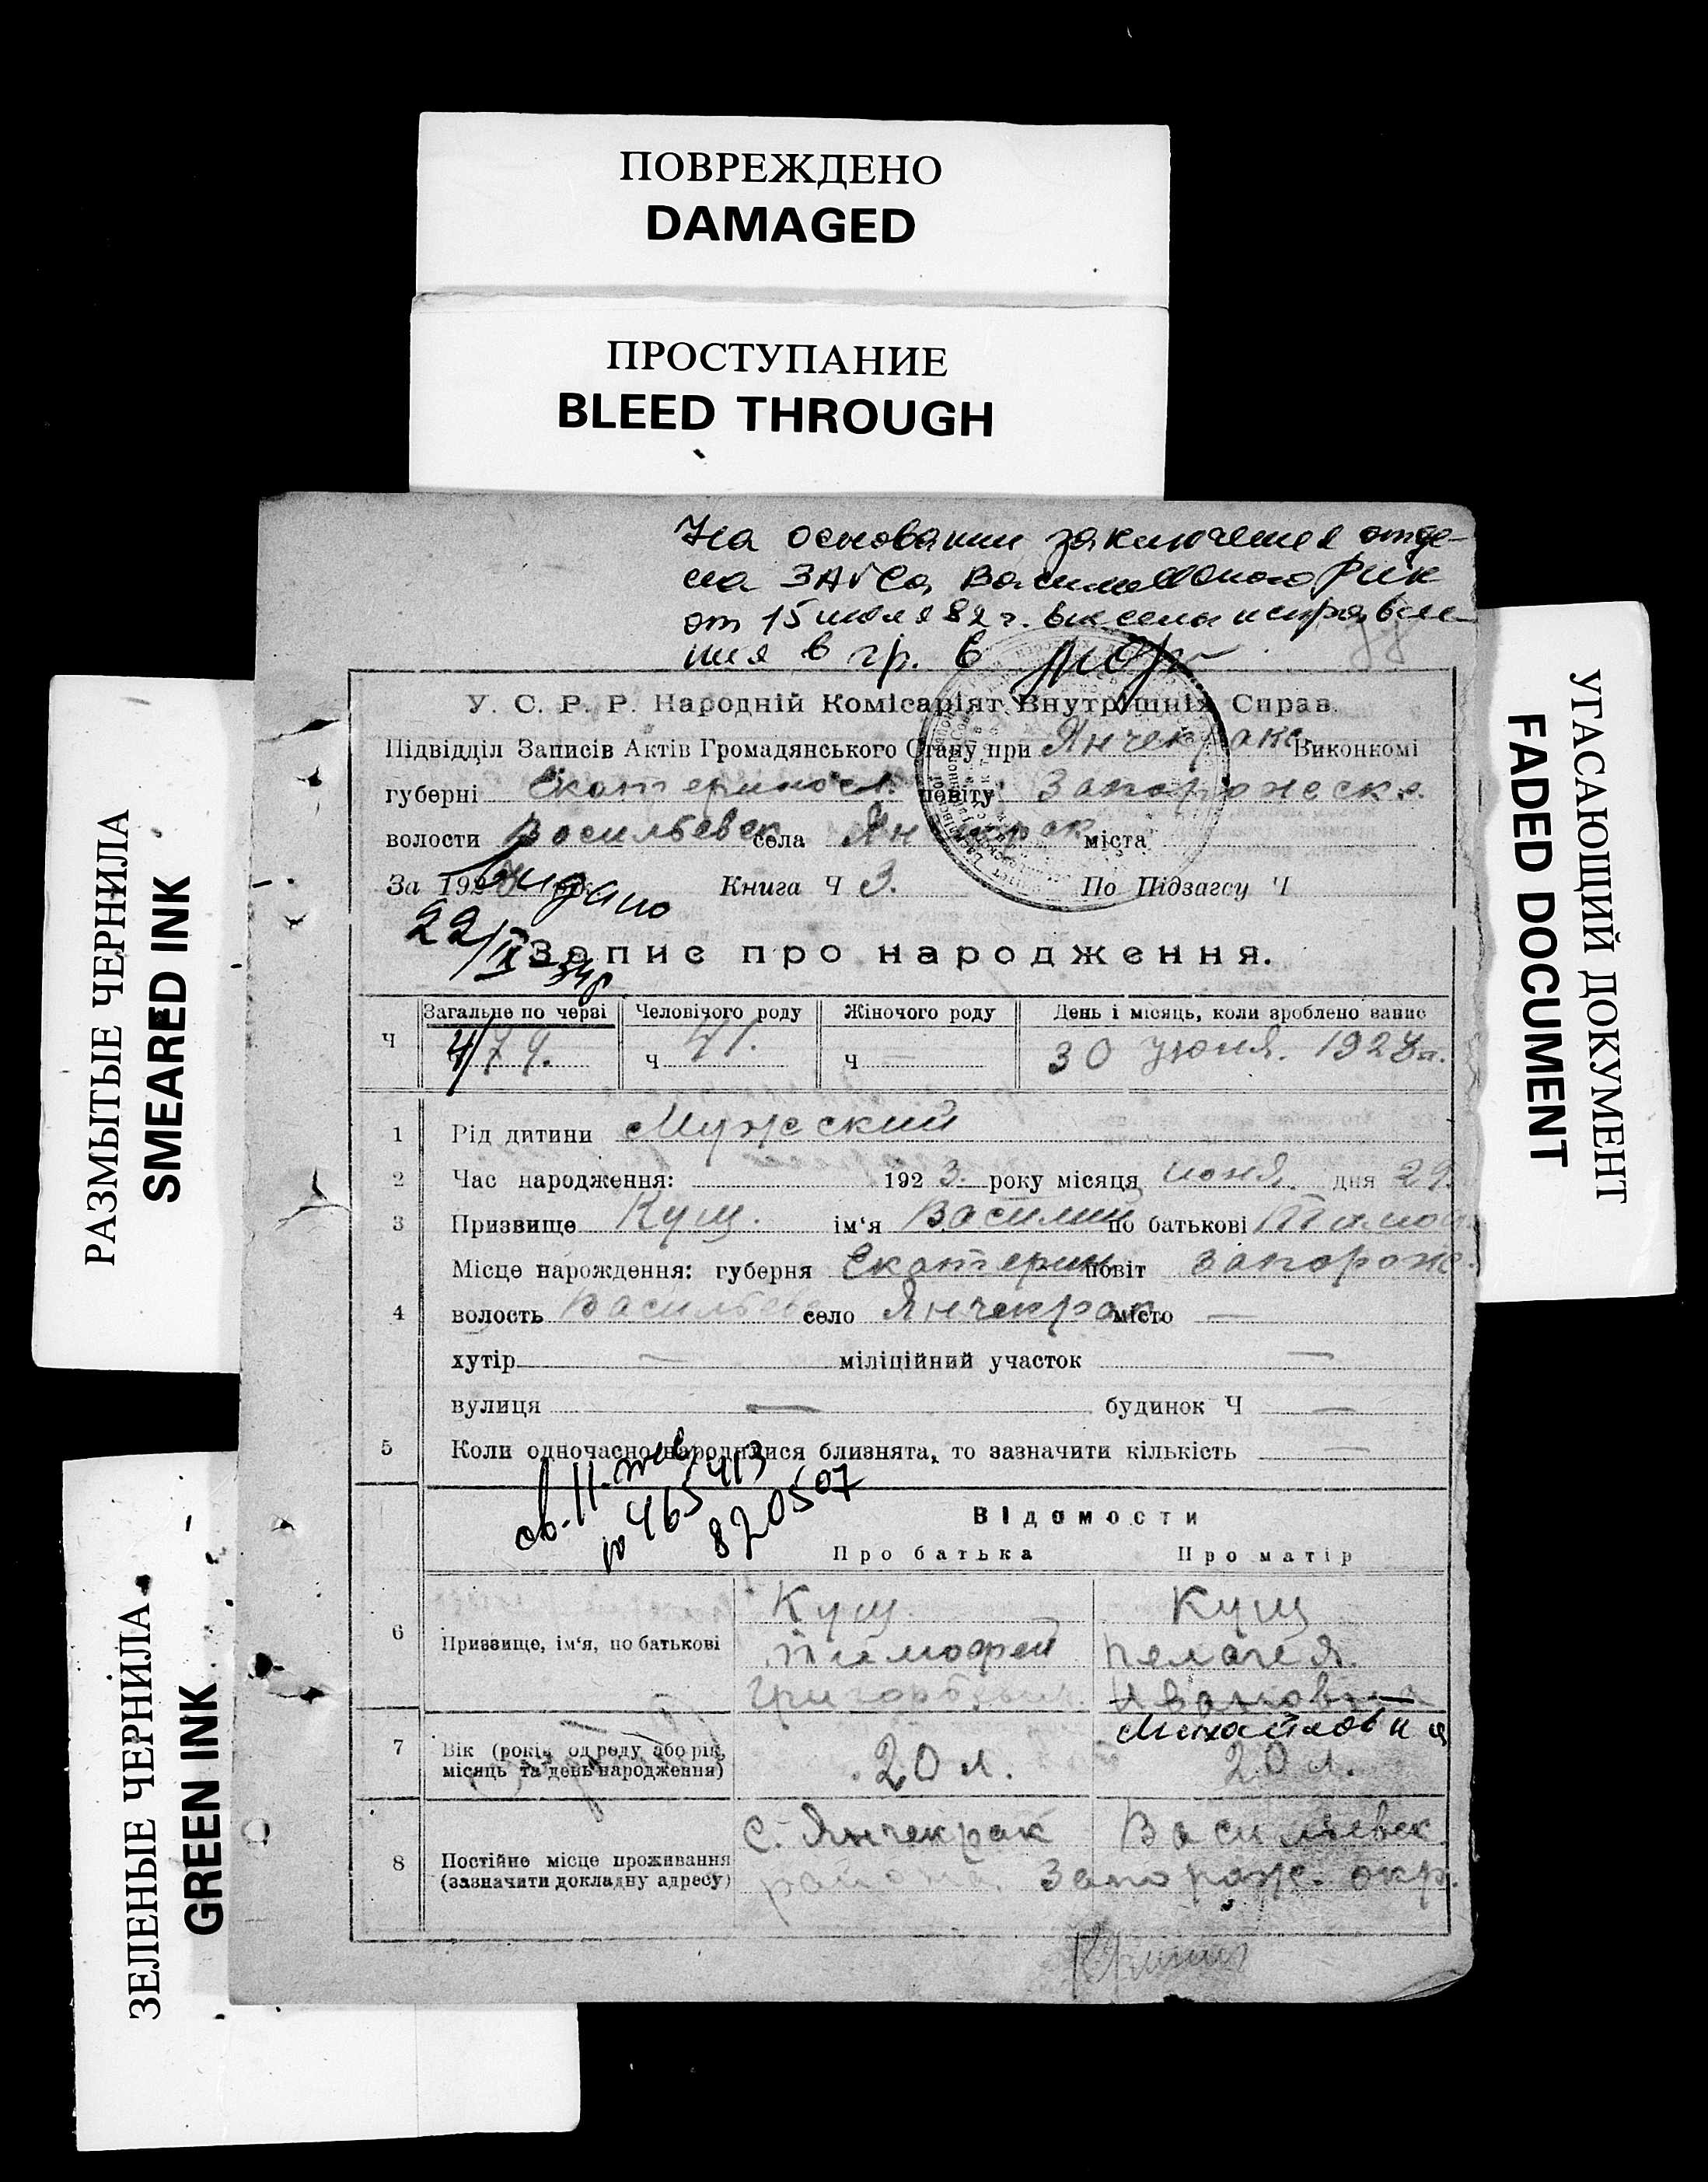 ПОВРЕЖДЕНО
DAMAGED
ПРОСТУПАНИЕ
BLEED THROUGH
РАЗМЫТЫЕ ЧЕРНИЛА
SMEARED INK
ЗЕЛЕНЫЕ ЧЕРНИЛА
GREEN INK
УГАСАЮЩИЙ ДОКУМЕНТ
FADED DOCUMENT
На основании заключения отде-
ла ЗАГСа Васильевского РИК
от 15 июля 82 г. внесены исправле-
ния в гр. 6
У. С. Р. Р. Народній Комісаріят Внутрішніх Справ.
Підвідділ Записів Актів Громадянського Стану при Янчекракс. Виконкомі
губерні Екатериносл. повіту Запорожеск.
волости Васильевск села Янчекрак міста
За 192 рік Книга Ч 3. По Підзагсу Ч
Видано
22/IX
Запис про народження.
Загальне по черзі Человічого роду Жіночого роду День і місяць, коли зроблено запис
Ч 479. Ч 41. Ч — 30 июня. 1923
1 Рід дитини Мужеский
2 Час народження: 1923. року місяця июня. дня 29.
3 Призвище Кущ. ім‘я Василий по батькові Тимоф.
Місце нарождення: губерня Екатерин повіт Запорож.
4 волость Васильев село Янчекрак. місто —
хутір — міліційний участок —
вулиця — будинок Ч —
5 Коли одночасно народилися близнята, то зазначити кількість —
№ 465413
820507
Відомости
Про батька Про матір
6 Призвище, ім‘я, по батькові
Кущ. Кущ
Тимофей Пелагея.
Григорьевич. Ивановна
Михайловна
7 Вік (років од роду або рік, місяць та день народження)
20 л. 20 л.
8 Постійне місце проживання (зазначити докладну адресу)
С. Янчекрак Васильевск.
района. Запорож. окр.